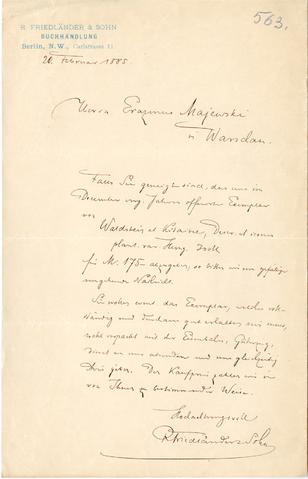 563.
R. FRIEDLÄNDER & SOHN
BUCHHANDLUNG
Berlin, N.W., Carlstrasse 11.
20. Februar 1885
Herrn Erazmus Majewski
in Warschau.
Falls Sie geneigt sind, das uns in
December vorig. Jahres offerirte Exemplar
von
Waldstein et Kitaibel, Descr. et icones
plant. rar. Hung. 3 voll
für M. 175 abzugeben, so bitten wir um gefällige
umgehende Nachricht.
Sie wollen sonst das Exemplar, welches voll-
ständig und durchaus gut erhalten sein muss,
wohl verpackt mit der Eisenbahn,
direct an uns absenden und uns gleichzeitig
Den Kaufpreis zahlen wir in
von Ihnen zu bestimmender Weise.
Hochachtungsvoll
R Friedländer & Sohn